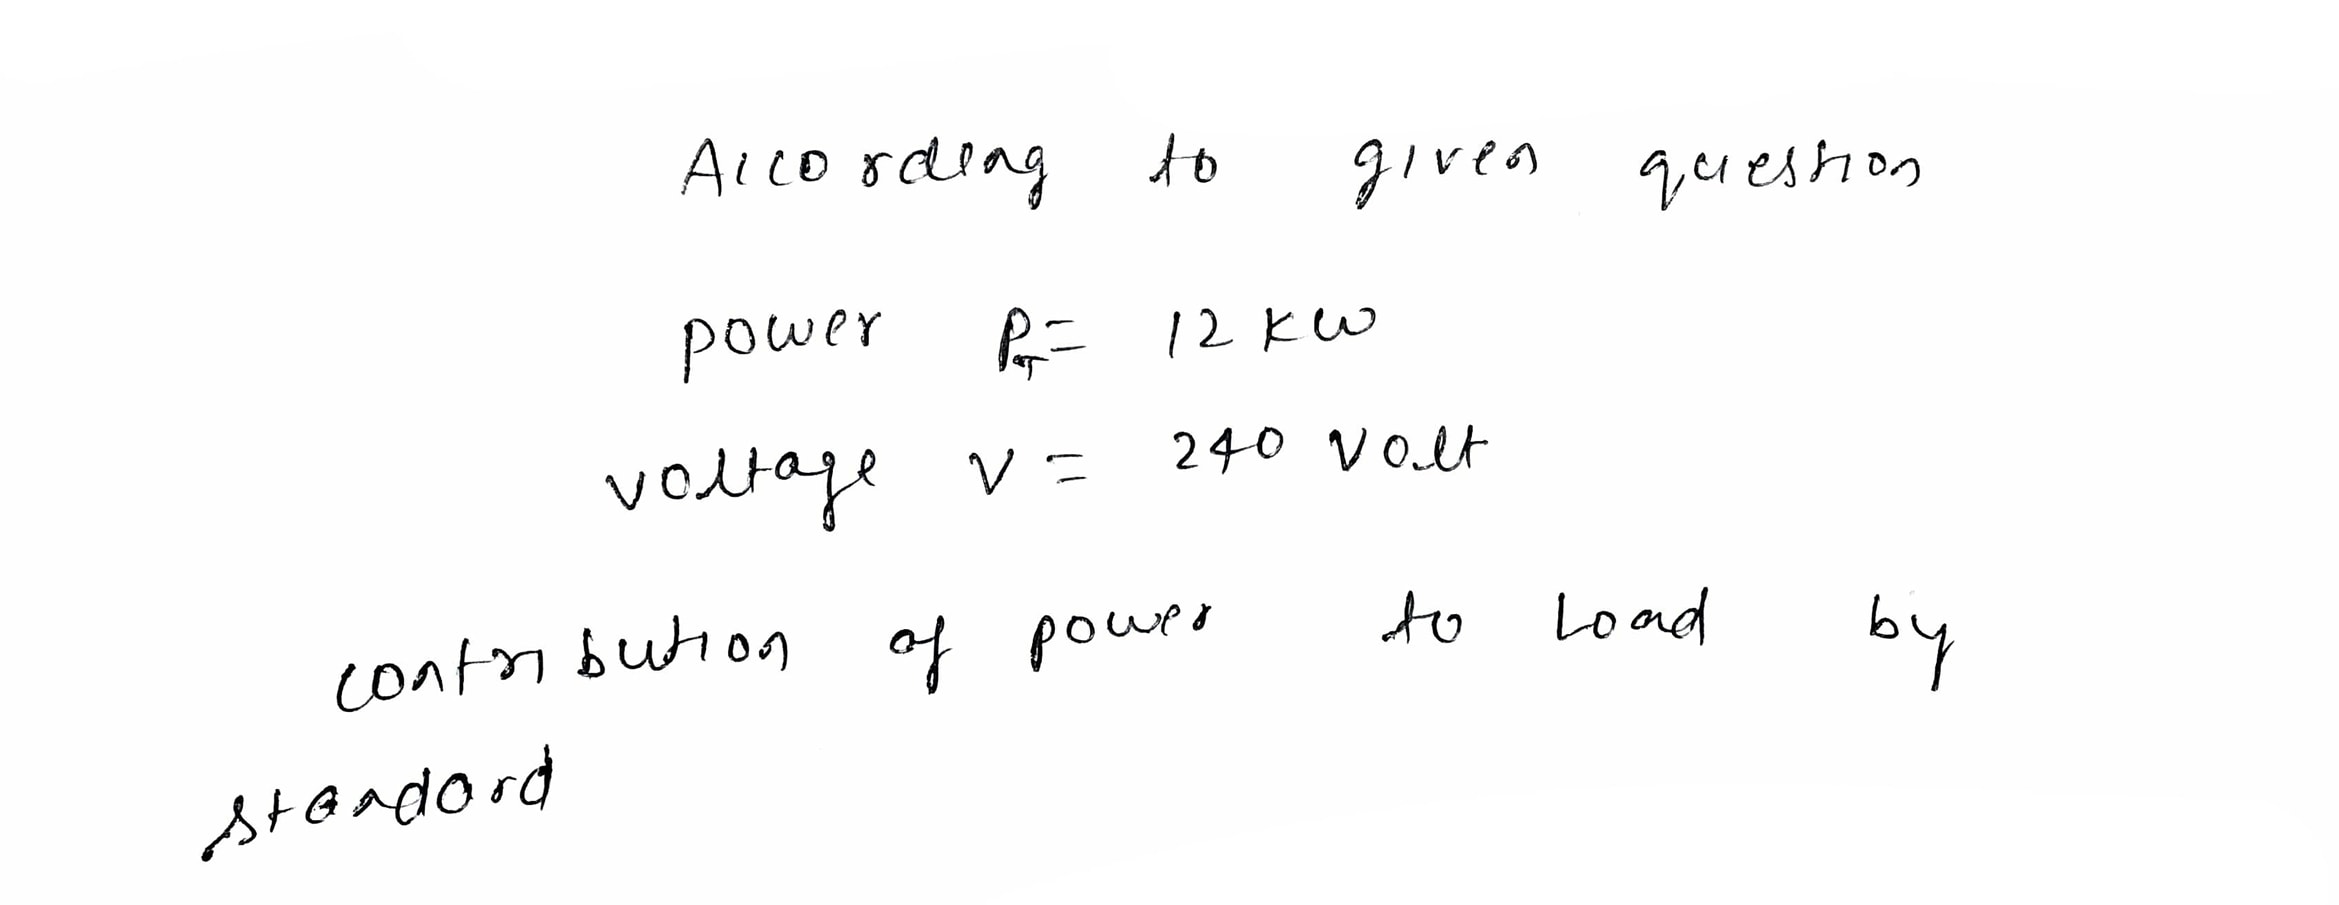 According to given question
power P_T = 12 kw
voltage v = 240 volt
contribution of power to Load by
standard